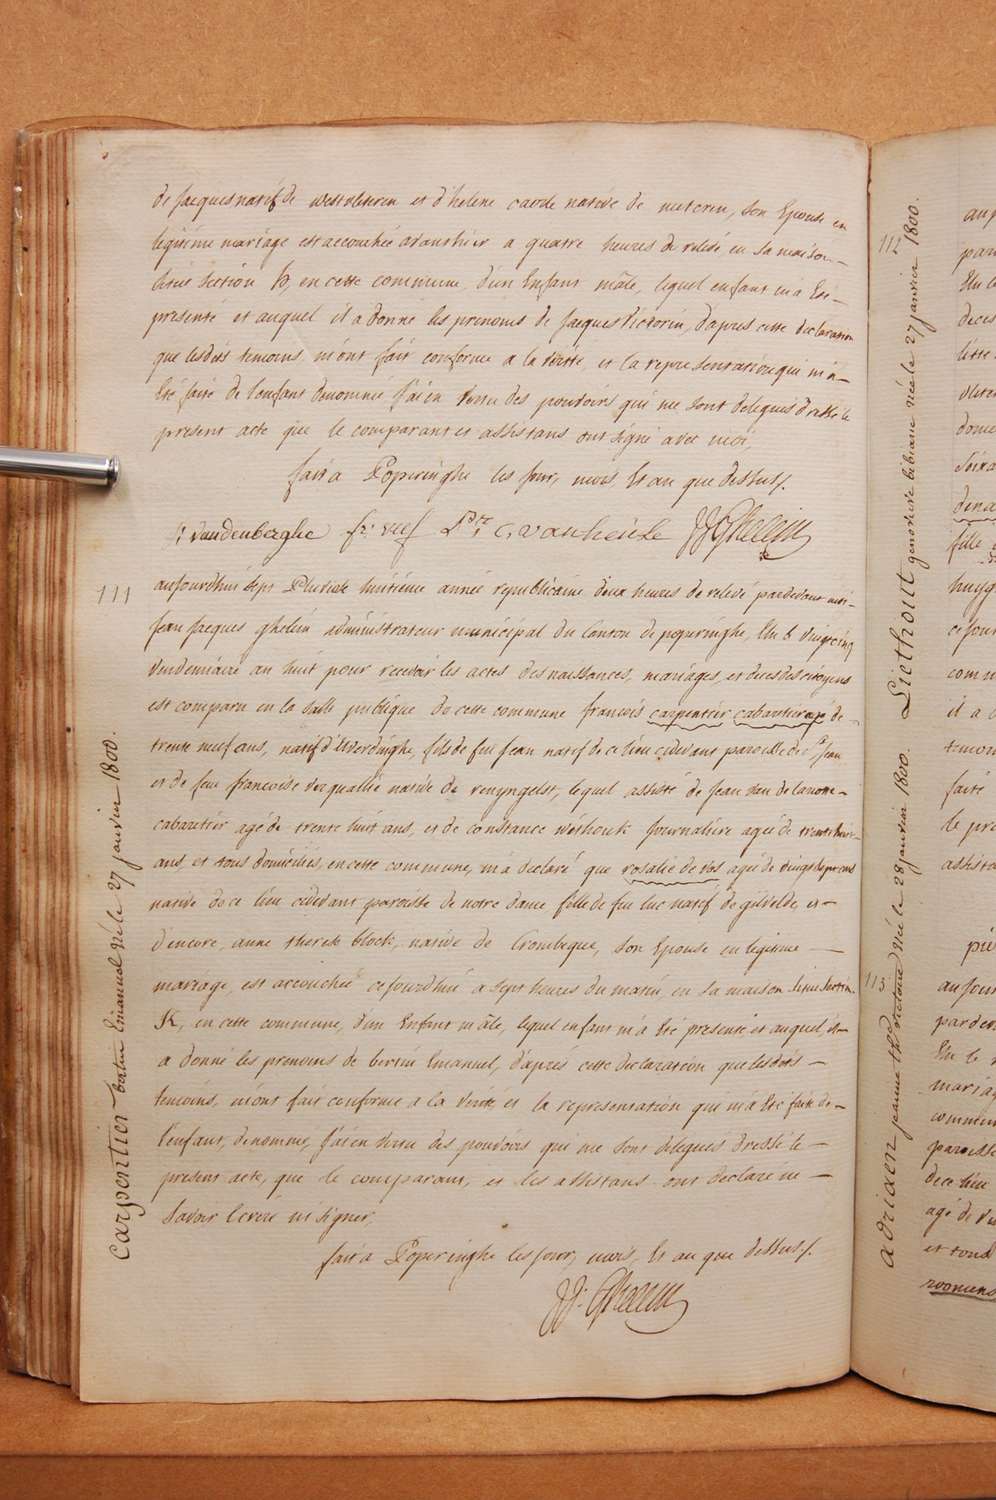 de Jacques natif de westvleteren et d'helene cavde native de nuteren, son Epouse en
legitime mariage est accouchée avanthier a quatre heures de relevé, en sa maison
situé section D, en cette commune, d'un Enfant mâle, lequel enfant m'a Eté
presenté et auquel il a donné les prenoms de Jacques Victorin, d'apres cette declaration
que lesdits temoins m'ont fait conforme a la verité, et la representation qui m'a
Eté faite de l'enfant denommé J'ai en vertu des pouvoirs qui me sont delegués dressé le
present acte que le comparant et assistans ont signé avec moi,
fait a Poperinghe les Jour, mois, Et an que dessus.
vandenberghe fr: vief Ptre C. vanheule JJGhelein
111
aujourdhui sept Pluviose huitieme année republicaine deux heures de relevé pardevant moi
Jean Jacques ghelein administrateur municipal du Canton de poperinghe, Elu le vingt cinq
vendemiaire an huit pour recevoir les actes des naissances, mariages, et deces des citoyens
est comparu en la salle publique de cette commune francois carpentier cabaretier agé de
trente neuf ans, natif d'Elverdinghe, fils de feu Jean natif de ce lieu cidevant paroisse de St Jean
et de feue francoise verquallie native de renyngelst, lequel assisté de Jean
cabaretier agé de trente huit ans, et de constance wethouk Journaliere agée de trente huit
ans, et tous domiciliés, en cette commune, m'a declaré que rosalie de vos agée de vingt sept ans
native de ce lieu cidevant paroisse de notre dame fille de feu luc natif de gilvelde, et
d'encore, anne therese block, native de Crombeque, son Epouse en legitime
mariage, est accouchée cejourdhui a sept heures du matin, en sa maison située section
K, en cette commune, d'un Enfant mâle, lequel enfant m'a Eté presenté, et auquel, il
a donné les prenoms de bertin Emanuel, d'après cette declaration que lesdits
temoins, m'ont fait conforme a la verité, et la representation qui m'a Eté faite de
l'enfant, denommé, J'ai en vertu des pouvoirs qui me sont delegués dressé le
present acte, que le comparant, et les assistans ont declaré ne
savoir Ecrire ni signer,
fait a Poperinghe les Jour, mois, Et an que dessus.
JJ. Ghelein
carpentier bertin Emanuel Né le 27 janvier 1800.
112
Liethout genovieve bibiane Née le 27 janvier 1800.
113
adriaen jeanne th. victoire Née le 28 janvier 1800.